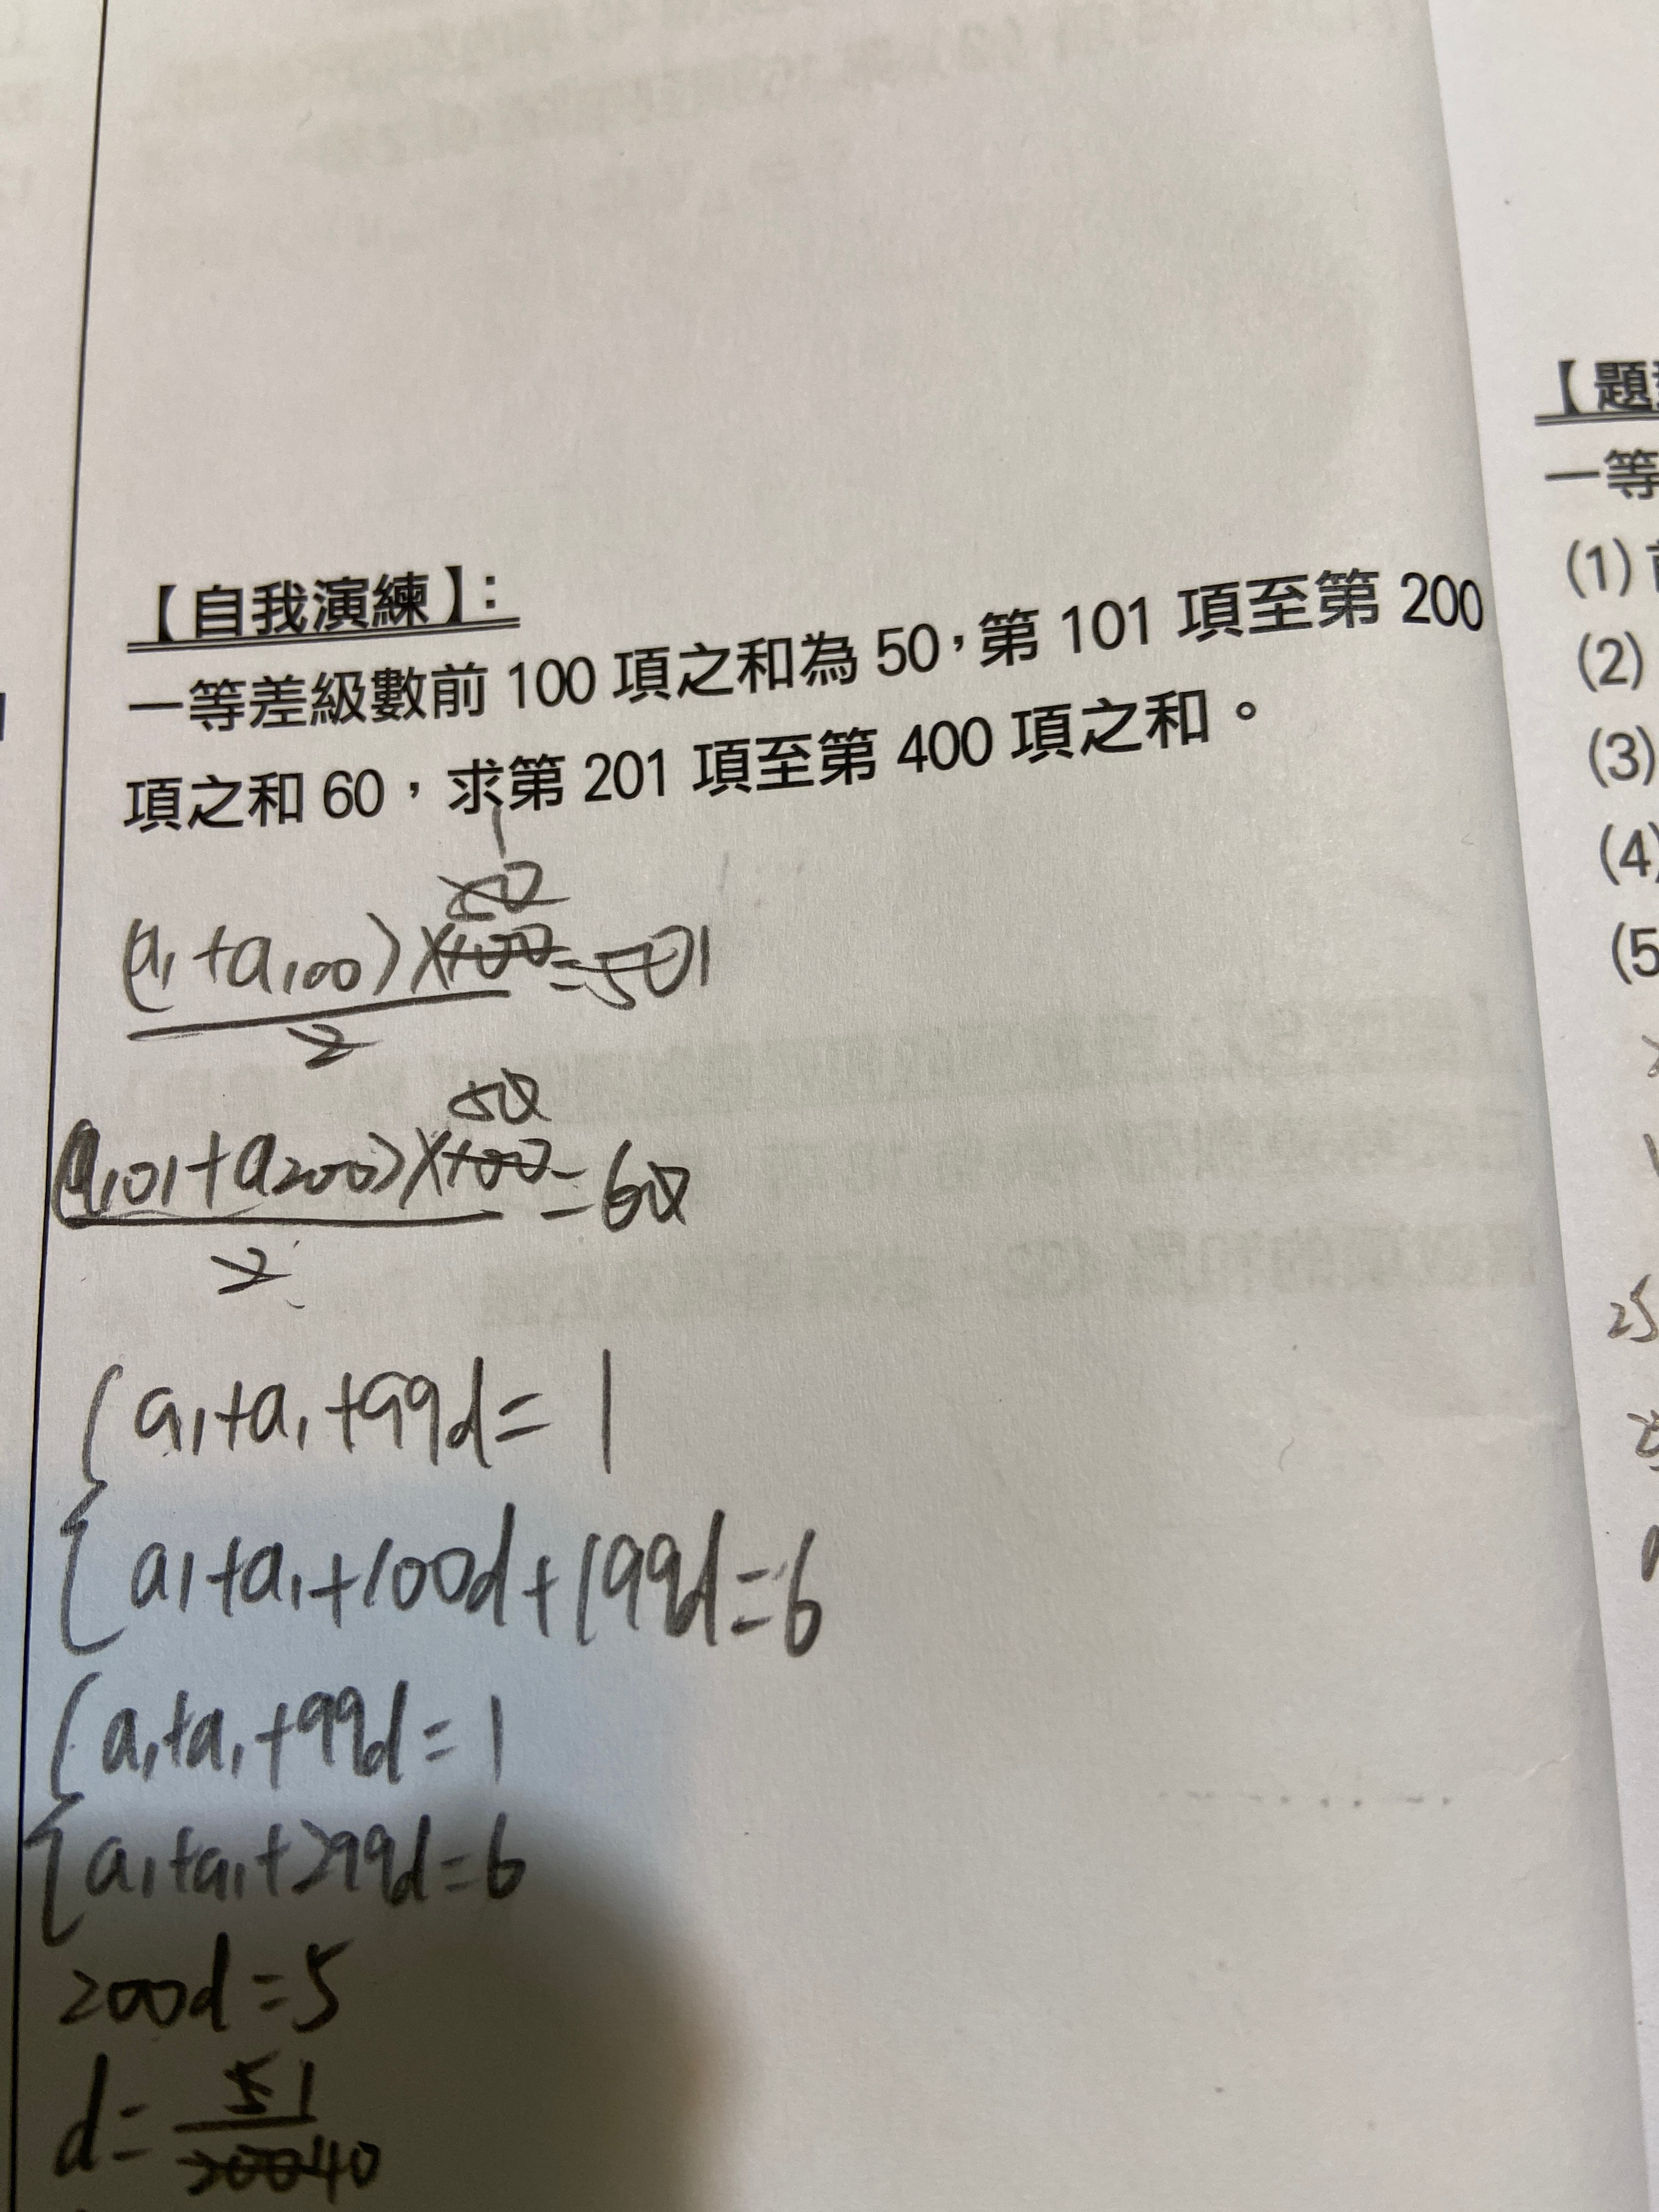 【自我演練】:
一等差級數前 100 項之和為 50，第 101 項至第 200
項之和 60，求第 201 項至第 400 項之和。
1
50
(a₁+a₁₀₀)×100=50 1
2
50
(a₁₀₁+a₂₀₀)×100=60
2
a₁+a₁+99d=1
a₁+a₁+100d+199d=6
a₁+a₁+99d=1
a₁+a₁+299d=6
200d=5
d=5 1
200 40
【題
一等
(1)
(2)
(3)
(4)
(5
25